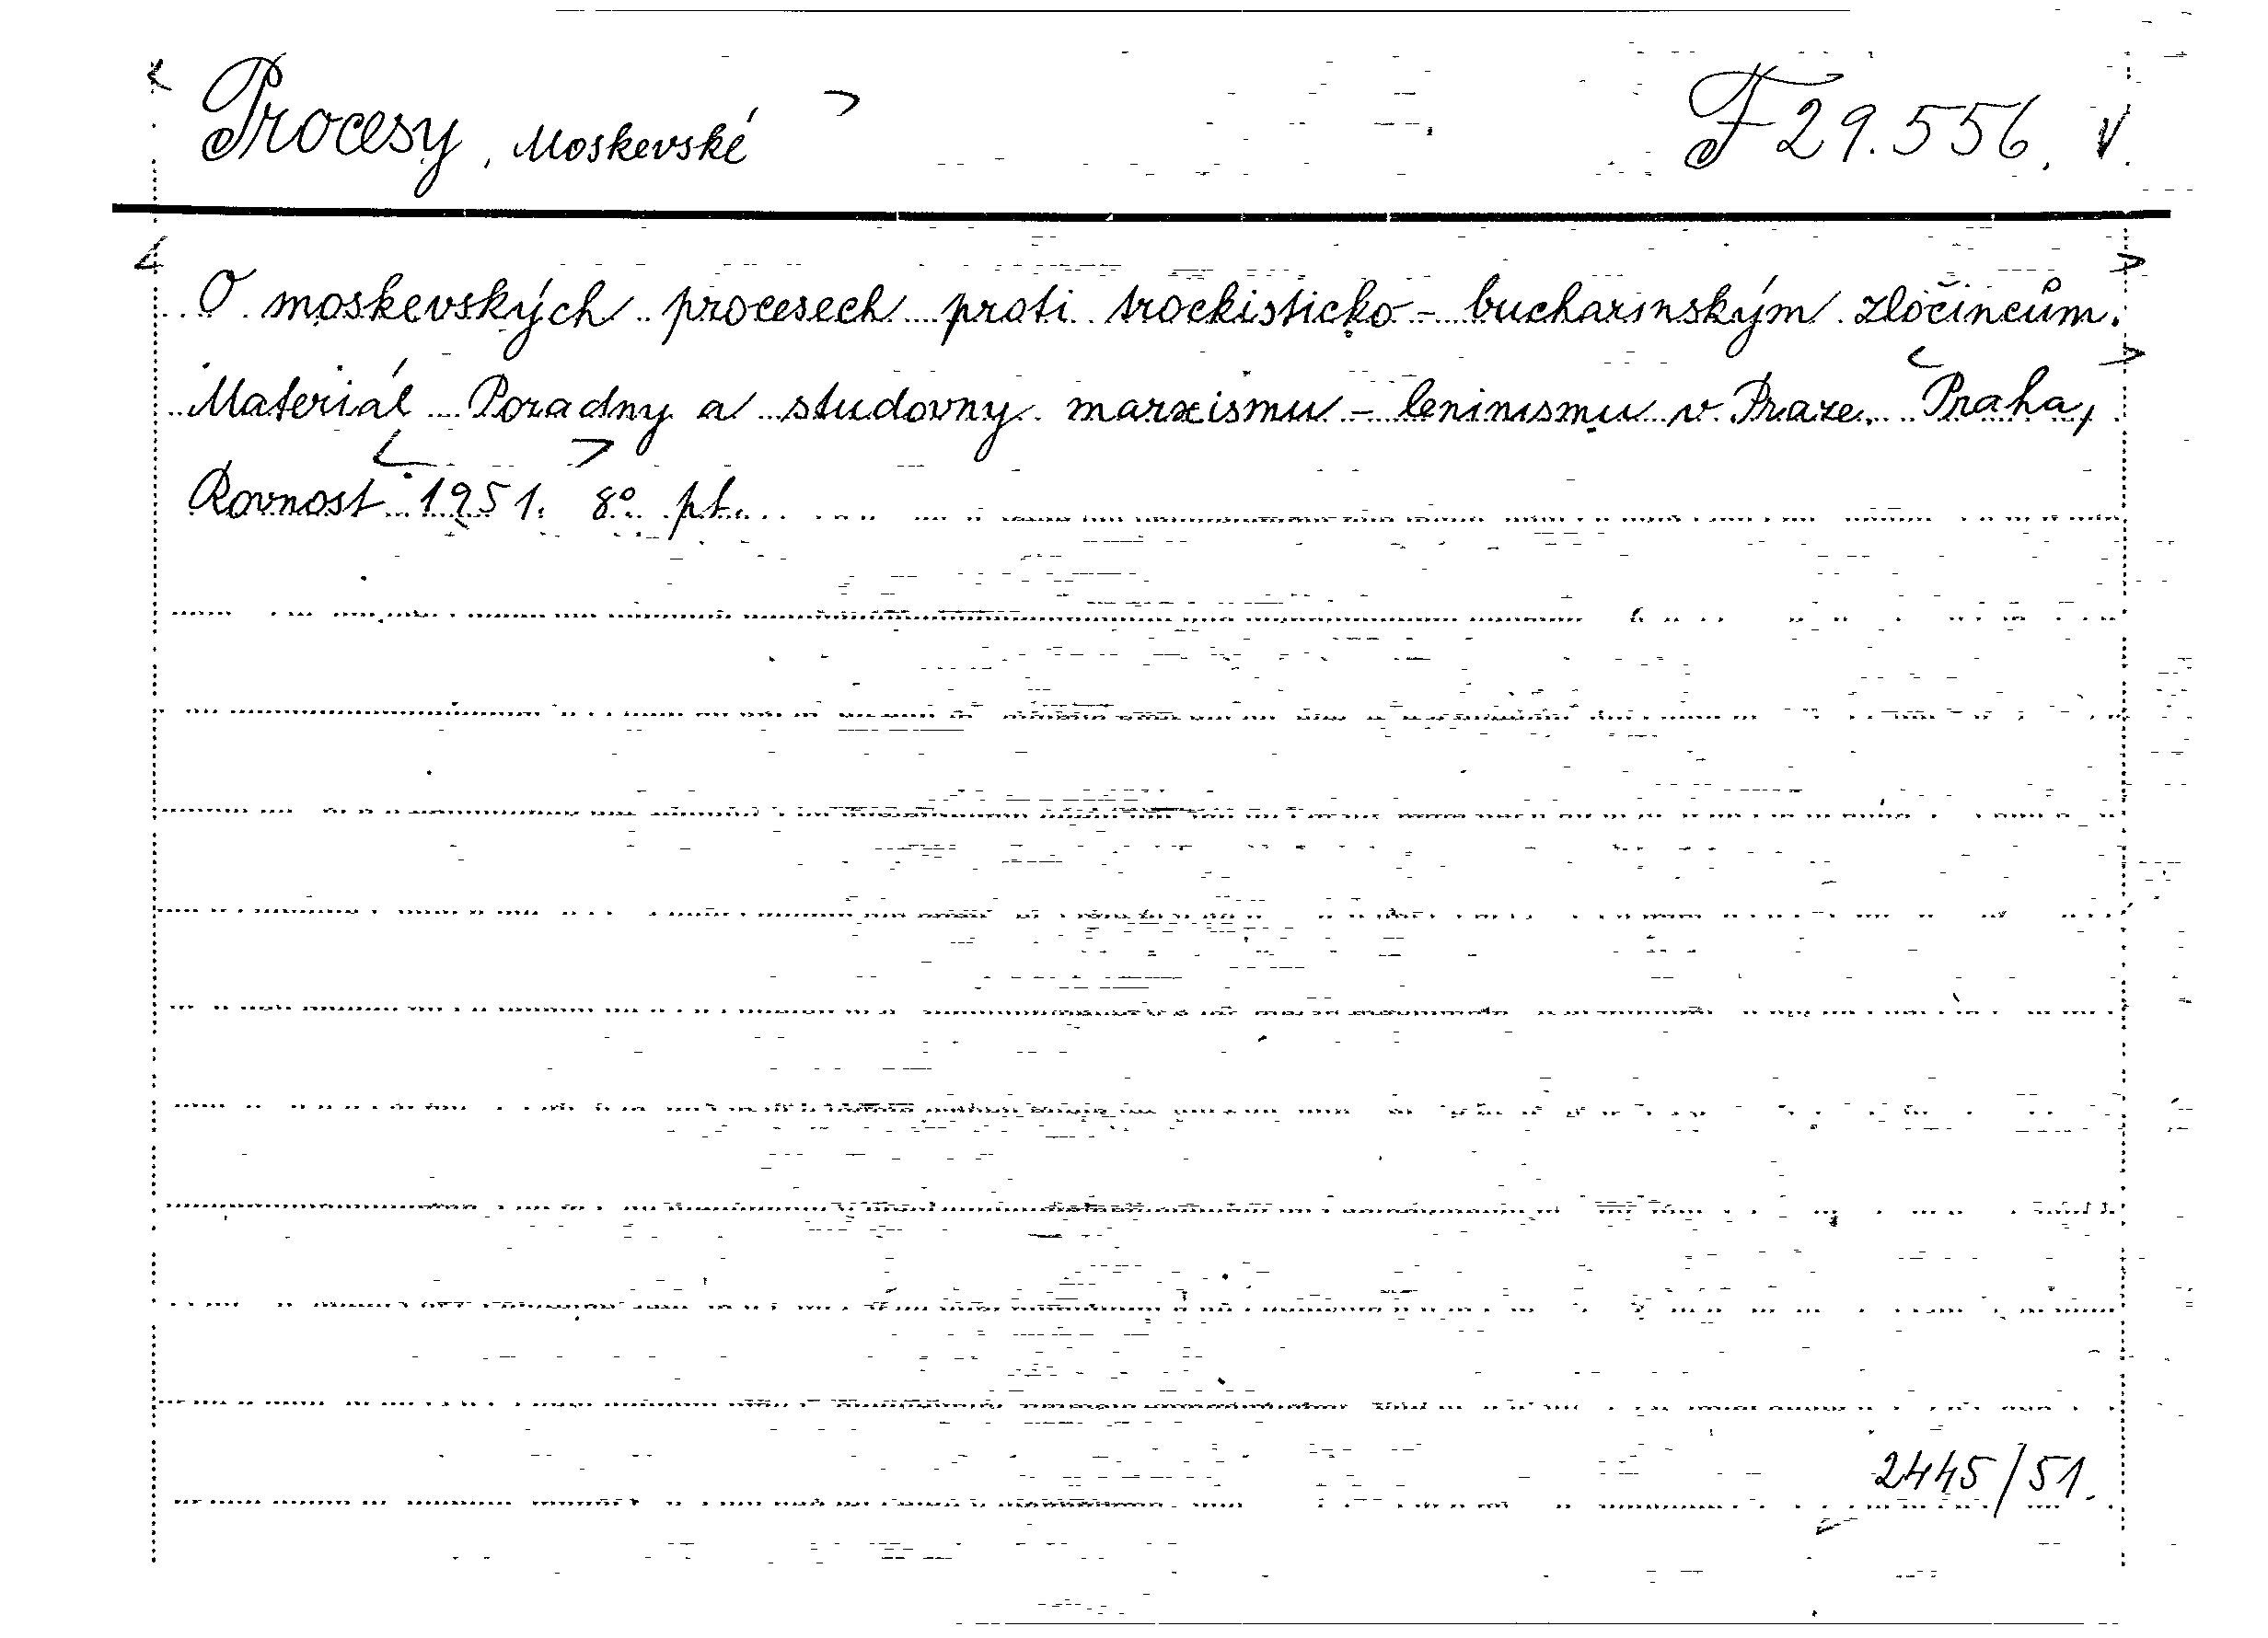 Procesy, Moskevské F 29.556. V.
O moskevských procesech proti trockisticko-bucharinským zločincům.
Materiál Poradny a studovny marxismu-leninismu v Praze. Praha,
Rovnost 1951. 8° pt.
2445/51.